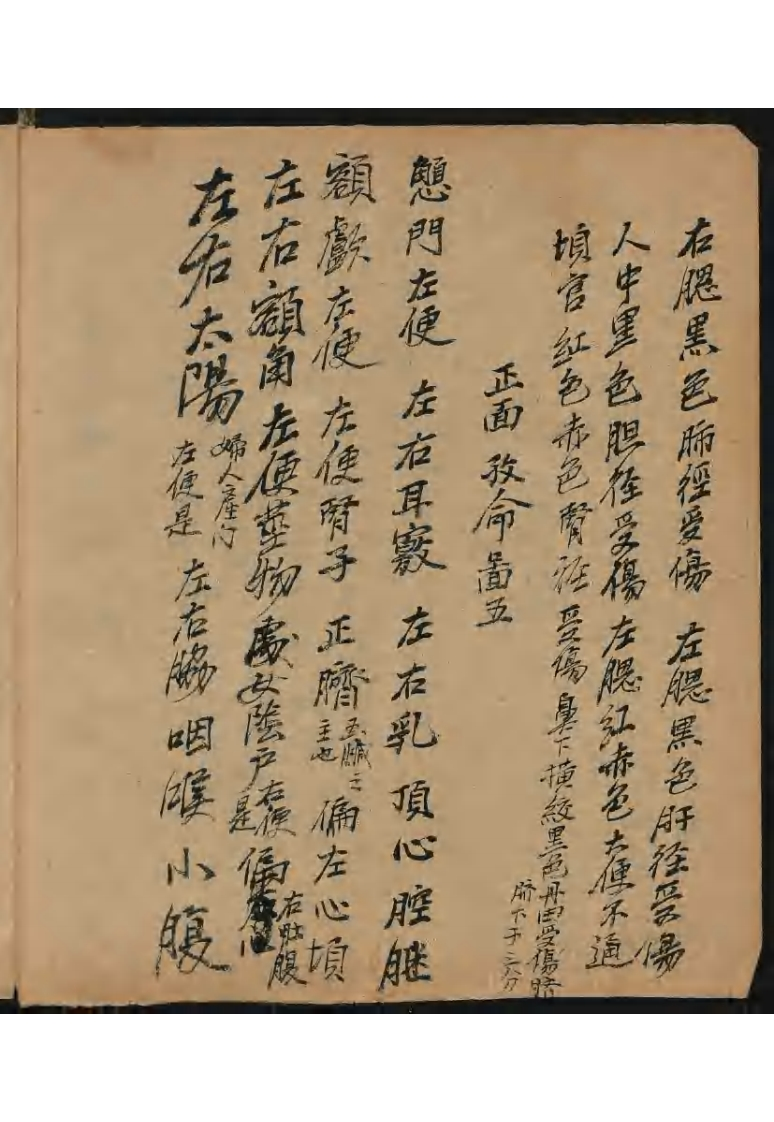 右腮黑色肺徑受傷 左腮黑色肝径受傷
人中黑色胆径受傷 左腮紅赤色大便不通
埙宫紅色赤色腎泟受傷鼻下横絞黑色丹田受傷臍
臍下于三六分
正面 致命啚五
顖門左便 左右耳竅 左右乳 頂心腔
額顱左便 左便腎子 正臍五臟之主也 偏左心埙
左右額角左便莖物處女陰户右便是偏 右肚腹
左右太陽婦人産门左便是 左右脇 咽喉 小腹